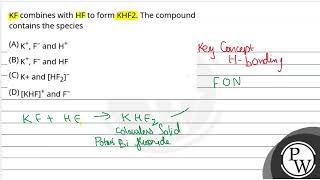 KF combines with HF to form KHF2. The compound
contains the species
(A) K⁺, F⁻ and H⁺
(B) K⁺, F⁻ and HF
(C) K+ and [HF₂]⁻
(D) [KHF]⁺ and F⁻
Key Concept
H-bonding
FON
KF + HF → KHF₂
Colourless Solid
Potass Bi fluoride
PW